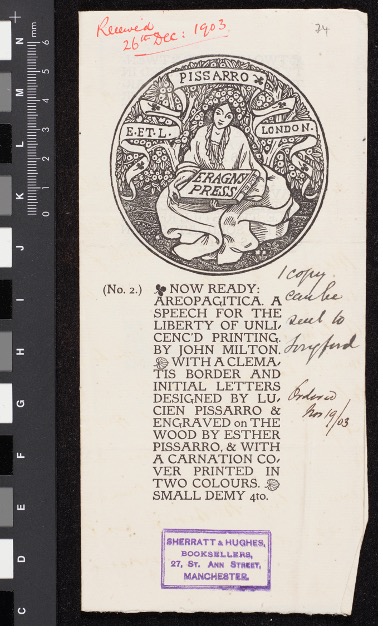 Received
26th Dec: 1903
74
PISSARRO
E. ET. L.
LONDON.
ERAGNY
PRESS
(No. 2.)
NOW READY:
AREOPAGITICA. A
SPEECH FOR THE
LIBERTY OF UNLI,
CENC'D PRINTING.
BY JOHN MILTON.
WITH A CLEMA,
TIS BORDER AND
INITIAL LETTERS
DESIGNED BY LU,
CIEN PISSARRO &
ENGRAVED on THE
WOOD BY ESTHER
PISSARRO, & WITH
A CARNATION CO,
VER PRINTED IN
TWO COLOURS.
SMALL DEMY 4to.
1 copy
can be
sent to
Longford
Ordered
Nov 19/03
SHERRATT & HUGHES,
BOOKSELLERS,
27, ST. ANN STREET,
MANCHESTER.
mm
0
1
2
3
4
5
6
N
M
L
K
J
I
H
G
F
E
D
C